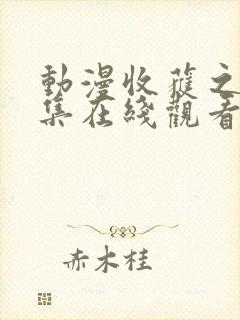 動漫收蓷之
集在綫觀看
赤木桂